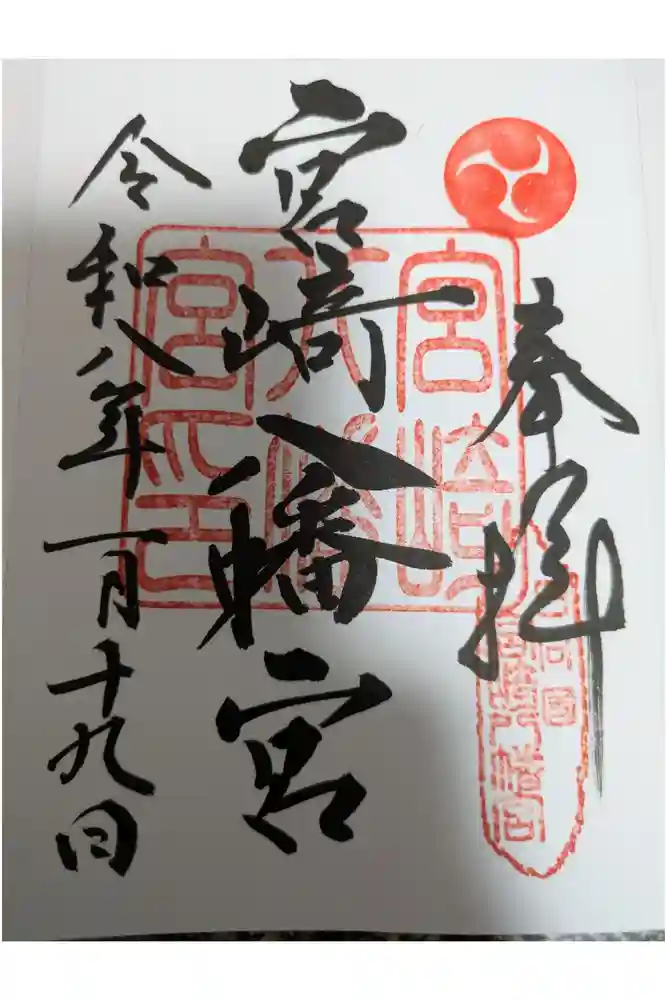 奉拝
宮崎八幡宮
令和八年一月十九日
宮崎
八幡
宮印
日向国
宮崎八幡宮